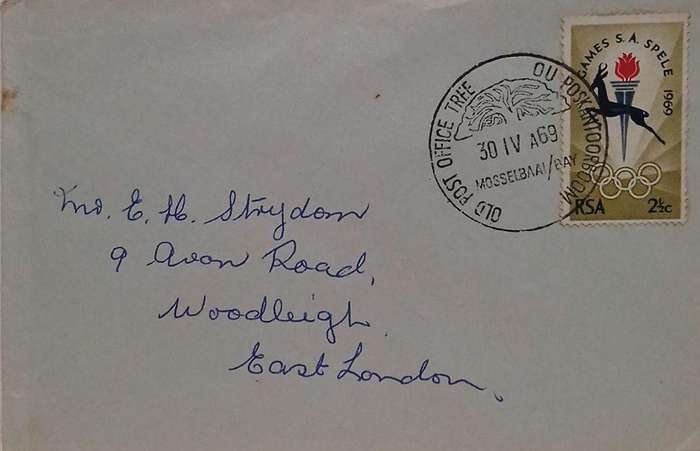 GAMES S.A. SPELE 1969
RSA 2½c
OLD POST OFFICE TREE
OU POSKANTOORBOOM
30 IV A69
MOSSELBAAI/BAY
Mr. E. H. Strydom
9 Avon Road,
Woodleigh
East London.